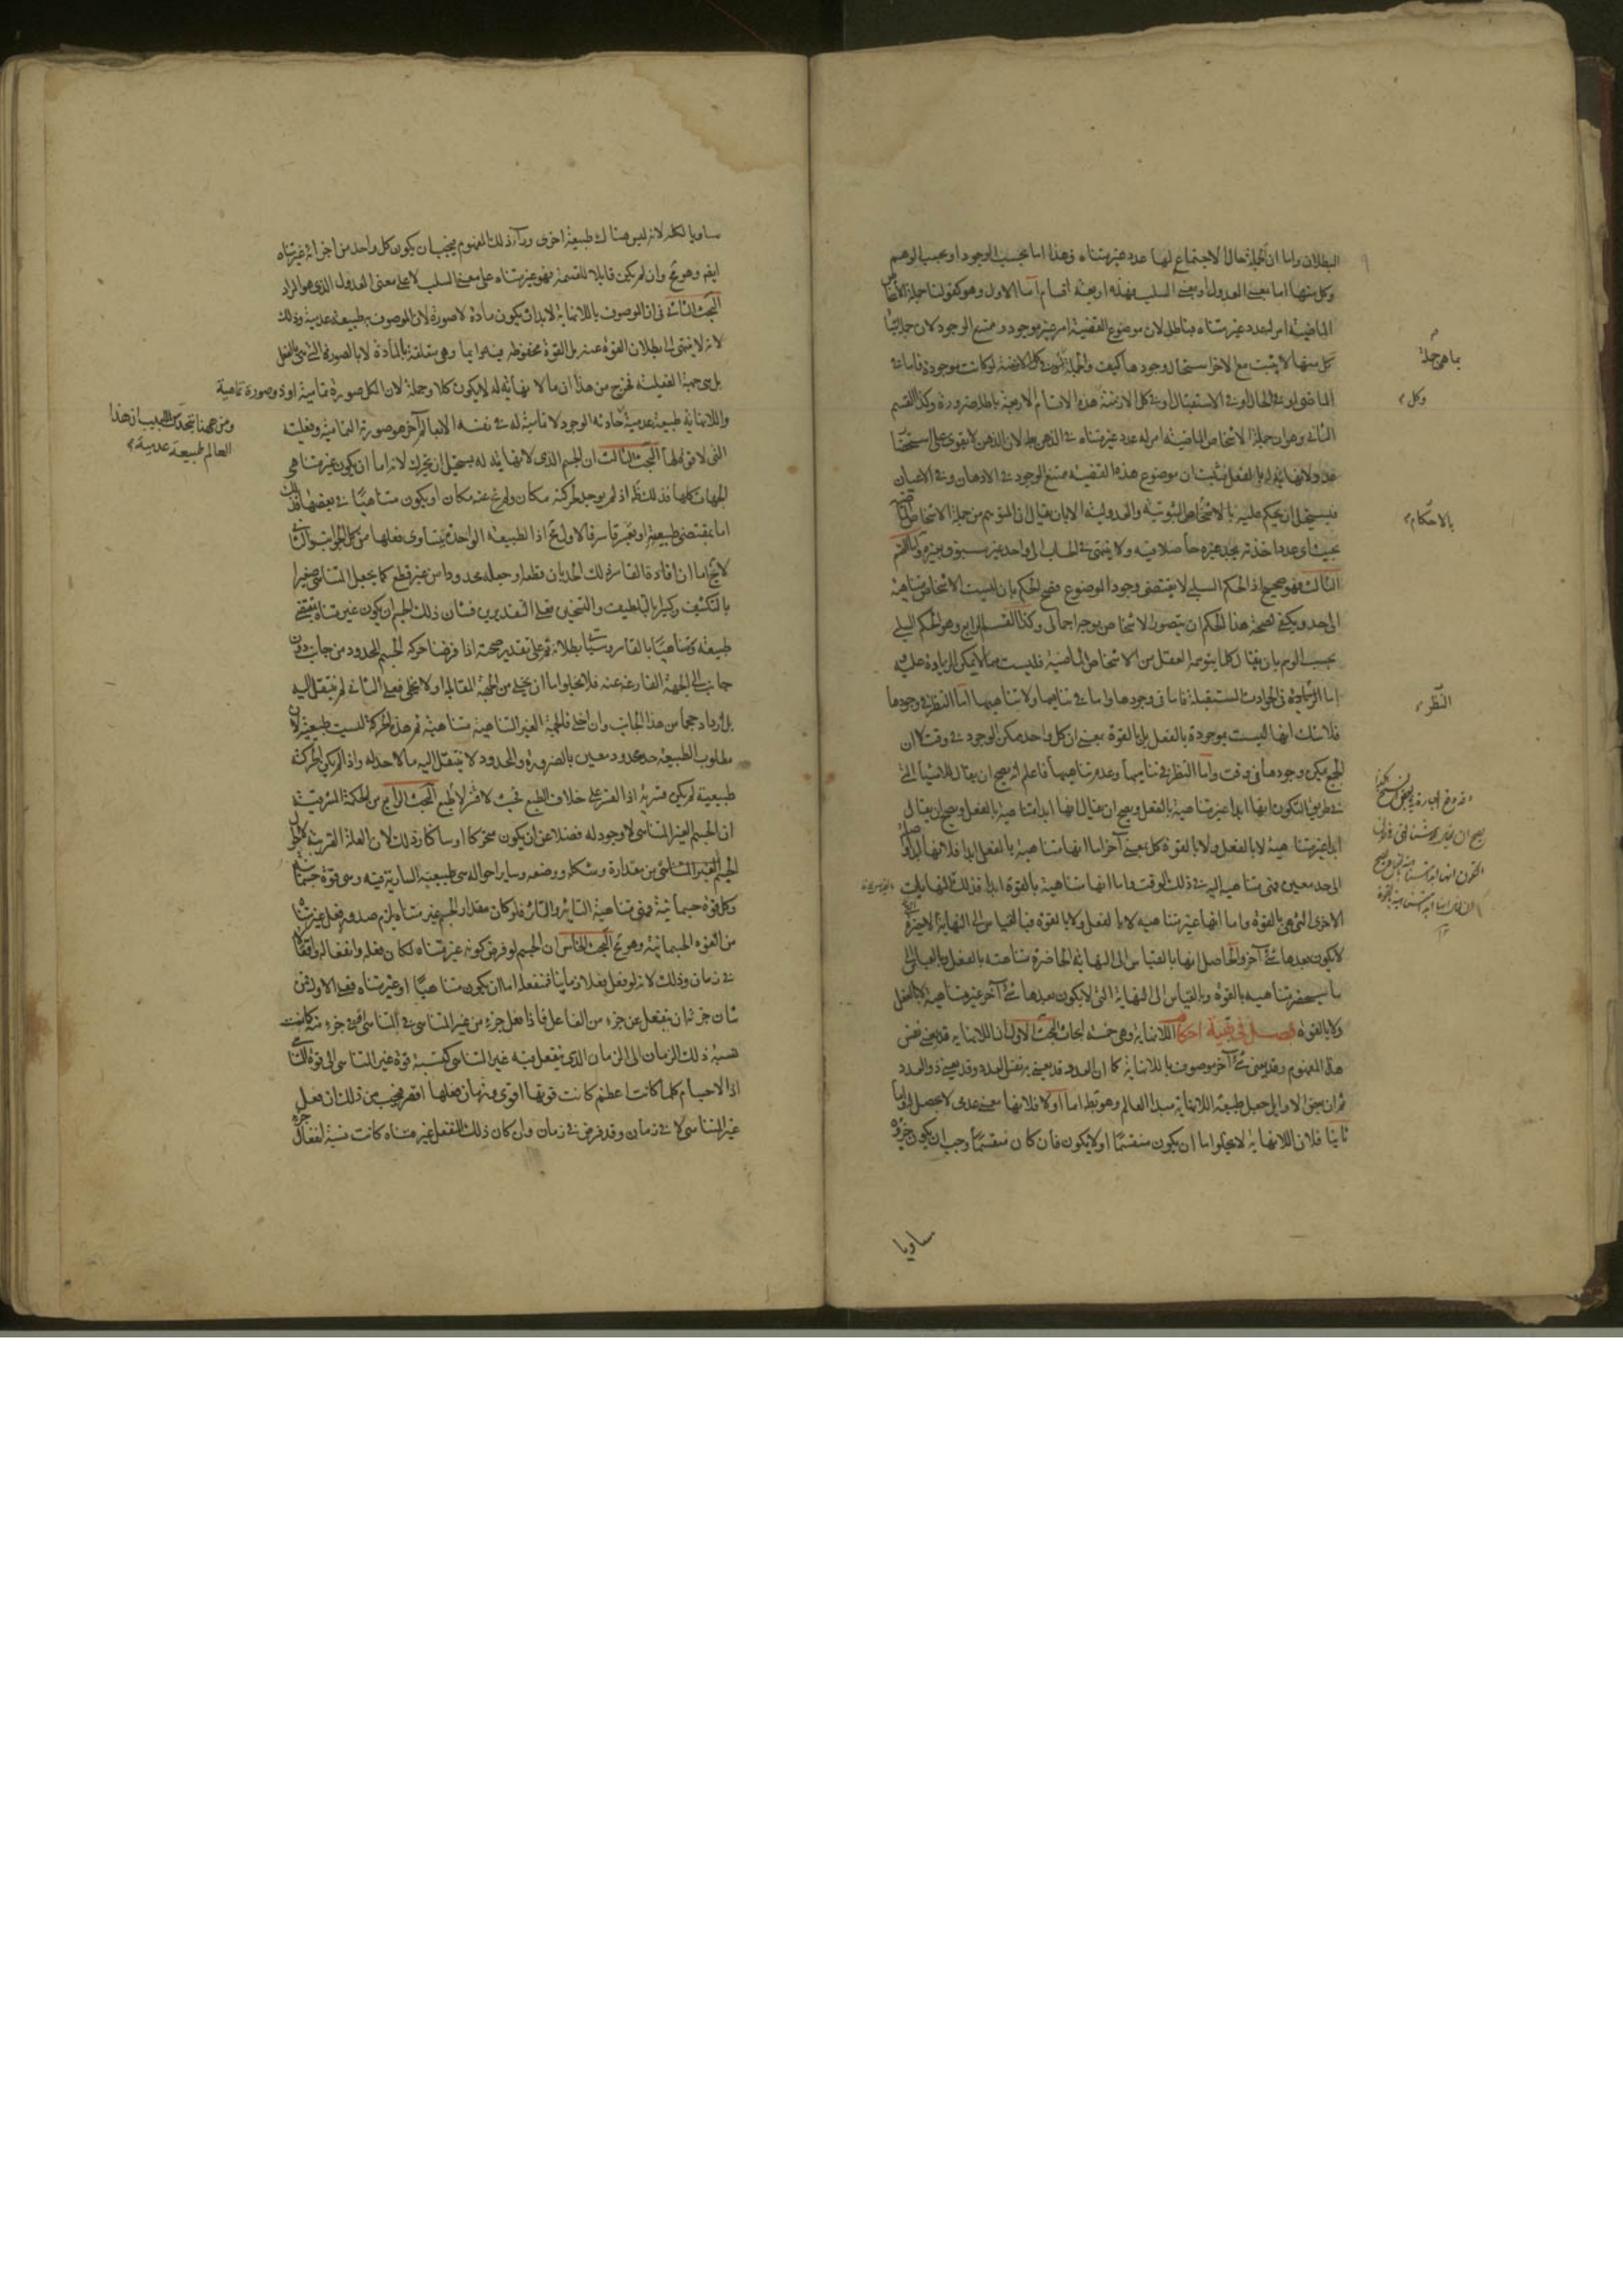 البطلان واما ان الجملة حال لاجتماع لها عدد غير متناه فهذا اما بحسب الوجود او بحسب الوهم
وكل منهما اما بمعنى العدول او بمعنى السلب فهذه اربعة اقسام اما الاول وهو كقولنا جملة الأشخاص
الماضية امر له عدد غير متناه فباطل لان موضوع القضية امر غير موجود وممتنع الوجود لان جملة
كل منها لا يثبت مع الاخر استحال وجودها كيف والجملة لو كانت موجودة فاما في
الماضى او في الحال او في الاستقبال او في كل الازمنة هذه الاقسام الاربعة باطلة ضرورة وكذا القسم
الثانى وهو ان جملة الاشخاص الماضية امر له عدد غير متناه في الذهن لان الذهن لا يقوى على استحضار
عدد لا نهاية له بالفعل فثبت ان موضوع هذه القضية ممتنع الوجود في الاذهان وفي الاعيان
فيستحيل ان يحكم عليه بالاشخاص الثبوتية والعدولية الا بان يقال ان المتوهم من جملة الاشخاص الماضية
بحيث اى عدد اخذته تجد غيره حاصلا فيه ولا ينتهى في الحساب الى واحد غير مسبوق بغيره واما القسم
الثالث فهو صحيح اذ الحكم السلبى لا يقتضى وجود الموضوع فصح الحكم بان ليست الاشخاص متناهية
الى حد ويكفى لصحة هذا الحكم ان يتصور الاشخاص بوجه اجمالى وكذا القسم الرابع وهو الحكم السلبى
بحسب الوهم بان يقال كلما يتوهمه العقل من الاشخاص الماضية فليست مما لا يمكن الزيادة عليه
اما الزيادة في الحوادث المستقبلة فاما في وجودها واما في تناهيها ولا تناهيها اما النظر في وجودها
فلا شك انها ليست موجودة بالفعل بل بالقوة بمعنى ان كل واحد ممكن الوجود في وقت لا ان
الجميع يمكن وجودها في وقت واما النظر في تناهيها وعدم تناهيها فاعلم انه يصح ان يقال للاشياء التى
في طريق التكون انها ابدا غير متناهية بالفعل ويصح ان يقال انها ابدا متناهية بالفعل ويصح ان يقال
ابدا غير متناهية لا بالفعل ولا بالقوة كل بمعنى آخر اما انها متناهية بالفعل ابدا فلانها ابدا واصلة
الى حد معين فهى متناهية اليه في ذلك الوقت واما انها متناهية بالقوة ابدا فذلك للنهايات
الاخرى التى هى بالقوة واما انها غير متناهية لا بالفعل ولا بالقوة فبالقياس الى النهاية الاخيرة التى
لا يكون بعدها شئ آخر والحاصل انها بالقياس الى النهاية الحاضرة متناهية بالفعل وبالقياس الى
ما سيحضر متناهية بالقوة وبالقياس الى النهاية التى لا يكون بعدها شئ آخر غير متناهية لا بالفعل
ولا بالقوة فصل في بقية احكام اللانهاية وهى خمسة ابحاث البحث الاول ان اللانهاية قد يعنى نفس
هذا المفهوم وقد يعنى شئ آخر موصوف باللانهاية كما ان العدد قد يعنى به نفس العدد وقد يعنى ذو العدد
ثم ان بعض الاوايل جعل طبيعة اللانهاية مبدا العالم وهو بط اما اولا فلانها معنى عدمى لا يحصل له واما
ثانيا فلان اللانهاية لا يخلوا اما ان يكون منقسما او لا يكون فان كان منقسما وجب ان يكون جزؤه
ساويا
بما هى جملة
وكل
بالاحكام
النظر
مساويا لكله لانه ليس هناك طبيعة اخرى وراء ذلك المفهوم فيجب ان يكون كل واحد من اجزائه غير متناه
ايضا وهو مح وان لم يكن قابلا للقسمة فهو غير متناه على معنى السلب لا على معنى العدول الذى هو المراد
البحث الثانى في ان الموصوف باللانهاية لا بد ان يكون مادة لا صورة لان الموصوف به طبيعة عدمية وذلك
لانه لا ينتهى الى بطلان القوة عنه بل القوة محفوظة فيه دايما وهى متعلقة بالمادة لا بالصورة التى هى بالفعل
بل هى جهة الفعلية فخرج من هذا ان ما لا نهاية له لا يكون كلا وجملة لان الكل صورة تمامية او ذو صورة تمامية
ومن ههنا يتحدس اللبيب ان هذا
العالم طبيعة عدمية
واللانهاية طبيعة عدمية حادثة الوجود لا تمامية له في نفسه الا بما آخر هو صورته التمامية وفعليته
التى لا قوة لها البحث الثالث ان الجسم الذى لا نهاية له يستحيل ان يتحرك لانه اما ان يكون غير متناهى
الجهات كلها فذلك ظ اذ لم يوجد لحركته مكان ولم يخل عنه مكان او يكون متناهيا في بعضها
اما بمقتضى طبيعته او بقسر قاسر فالاول مح اذ الطبيعة الواحدة يتساوى فعلها من كل الجوانب والثانى
لا يخ اما ان افاده القاسر ذلك الحد بان قطعه او جعله محدودا من غير قطع كما يجعل المتناهى صغيرا
بالتكثيف وكبيرا بالتلطيف والتخلخل فعلى التقديرين فشان ذلك الجسم ان يكون غير متناه بمقتضى
طبيعته ومتناهيا بالقاسر وسيأتى بطلانه ثم على تقدير صحته اذا فرضنا حركة الجسم المحدود من جانب دون
جانب الى الجهة الفارغة عنه فلا يخلوا ما ان يخلى من الجهة المقابلة او لا يخلى فعلى الثانى لم ينتقل اليه
بل ازداد حجما من هذا الجانب وان اخلى فالجهة الغير المتناهية متناهية ثم هذه الحركة ليست طبيعية لان
مطلوب الطبيعة حد محدود معين بالضرورة والمحدود لا ينتقل اليه ما لا حد له واذا لم يكن الحركة
طبيعية لم يكن قسرية اذ القسر على خلاف الطبع فحيث لا قسر لا طبع البحث الرابع من الحكمة المشرقية
ان الجسم الغير المتناهى لا وجود له فضلا عن ان يكون متحركا او ساكنا وذلك لان العلة القريبة لاحوال
الجسم الغير المتناهى من مقداره وشكله ووضعه وساير احواله هى طبيعته السارية فيه وهى قوة جسمانية
وكل قوة جسمانية فهى متناهية التاثير والتاثر فلو كان مقدار الجسم غير متناه يلزم صدور فعل غير متناه
من القوة الجسمانية وهو مح البحث الخامس ان الجسم لو فرض كونه غير متناه لكان فعله وانفعاله واقعا
في زمان وذلك لانه لو فعل فعلا زمانيا فمنفعله اما ان يكون متناهيا او غير متناه فعلى الاول فمن
شان جزء ان ينفعل عن جزء من الفاعل فاذا فعل جزء من غير المتناهى في المتناهى او في جزء منه كانت
نسبة ذلك الزمان الى الزمان الذى يفعل فيه غير المتناهى كنسبة قوة غير المتناهى الى قوة المتناهى
اذ الاجسام كلما كانت اعظم كانت قوتها اقوى وزمان فعلها اقصر فيجب من ذلك ان فعل
غير المتناهى لا في زمان وقد فرض في زمان وان كان ذلك المنفعل غير متناه كانت نسبة انفعال جزء